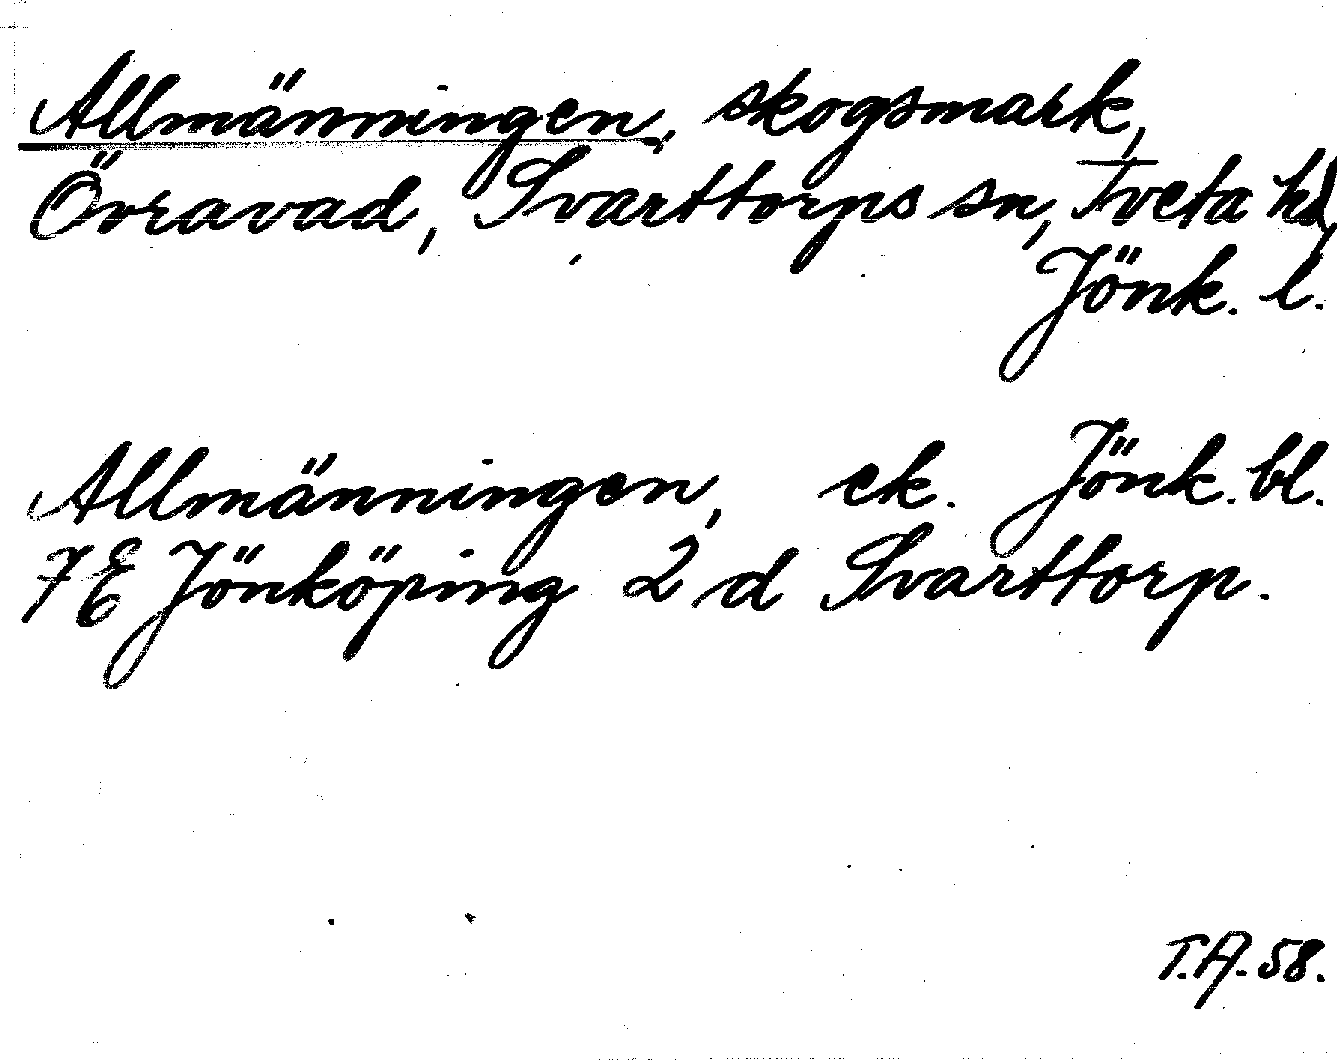 Allmänningen, skogsmark,
Övravad, Svarttorps sn, Tveta hd,
Jönk. l.
Allmänningen, ek. Jönk. bl.
7E Jönköping 2 d Svarttorp.
T.A. 58.